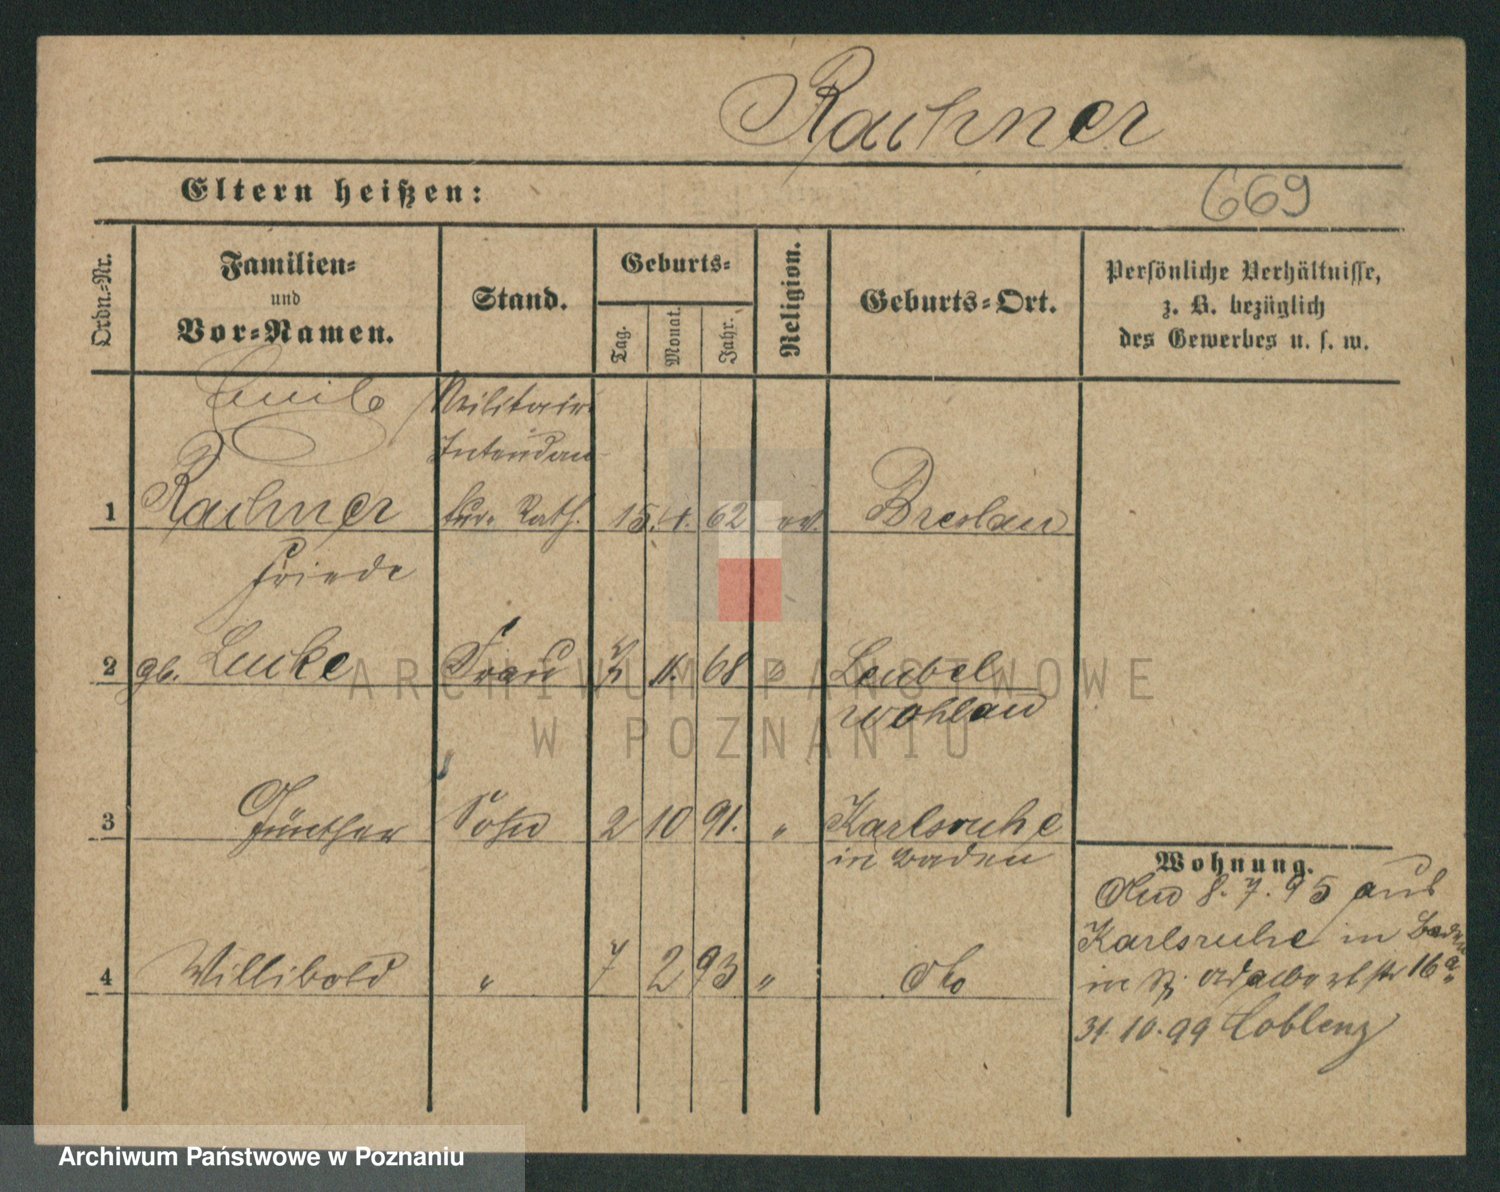 Rachner
Eltern heißen:
669
Ordn.-Nr.
Familien-
und
Vor-Namen.
Stand.
Geburts-
Tag.
Monat.
Jahr.
Religion.
Geburts-Ort.
Persönliche Verhältnisse,
z. B. bezüglich
des Gewerbes u. s. w.
1
Emil
Rachner
Militair
Intendan-
tur. Rath.
15. 4. 62 ev. Breslau
Friede
2 gb. Lucke Frau 11. 68 " Leubel
Wohlau
3 Günther Sohn 2 10 91. " Karlsruhe
in Baden
4 Willibold " 7 2 93 " dto
Wohnung.
8.7.95 aus
Karlsruhe in Baden
in 16a
31.10.99 Coblenz
ARCHIWUM PAŃSTWOWE
W POZNANIU
Archiwum Państwowe w Poznaniu